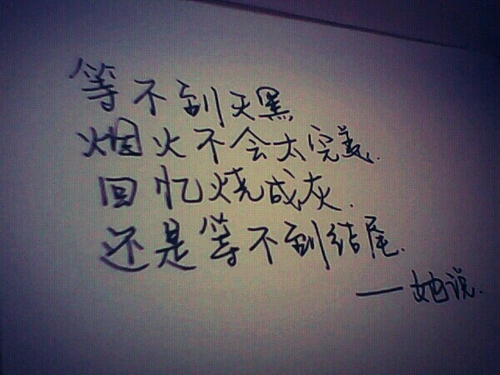 等不到天黑
烟火不会太完美.
回忆烧成灰.
还是等不到结尾.
——她说.